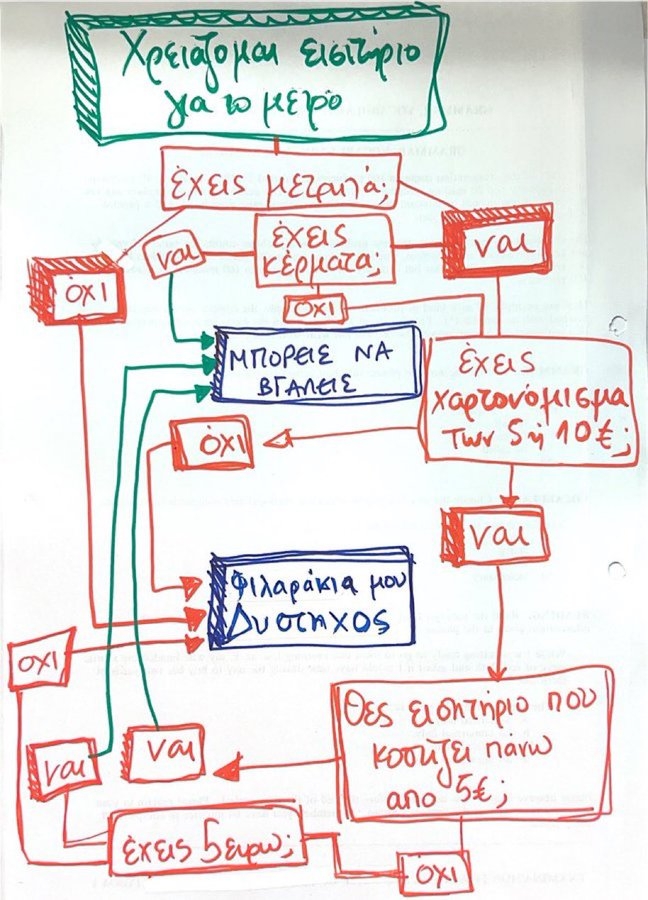 Χρειάζομαι εισιτήριο
για το μετρο
έχεις μετρητά;
ναι
έχεις
κέρματα;
ναι
όχι
όχι
ΜΠΟΡΕΙΣ ΝΑ
ΒΓΑΛΕΙΣ
έχεις
χαρτονόμισμα
των 5 ή 10€;
όχι
ναι
Φιλαράκια μου
Δυστηχος
οχι
Θες εισητήριο που
κοστιζει πανω
απο 5€;
ναι
ναι
έχεις 5 ευρω;
όχι